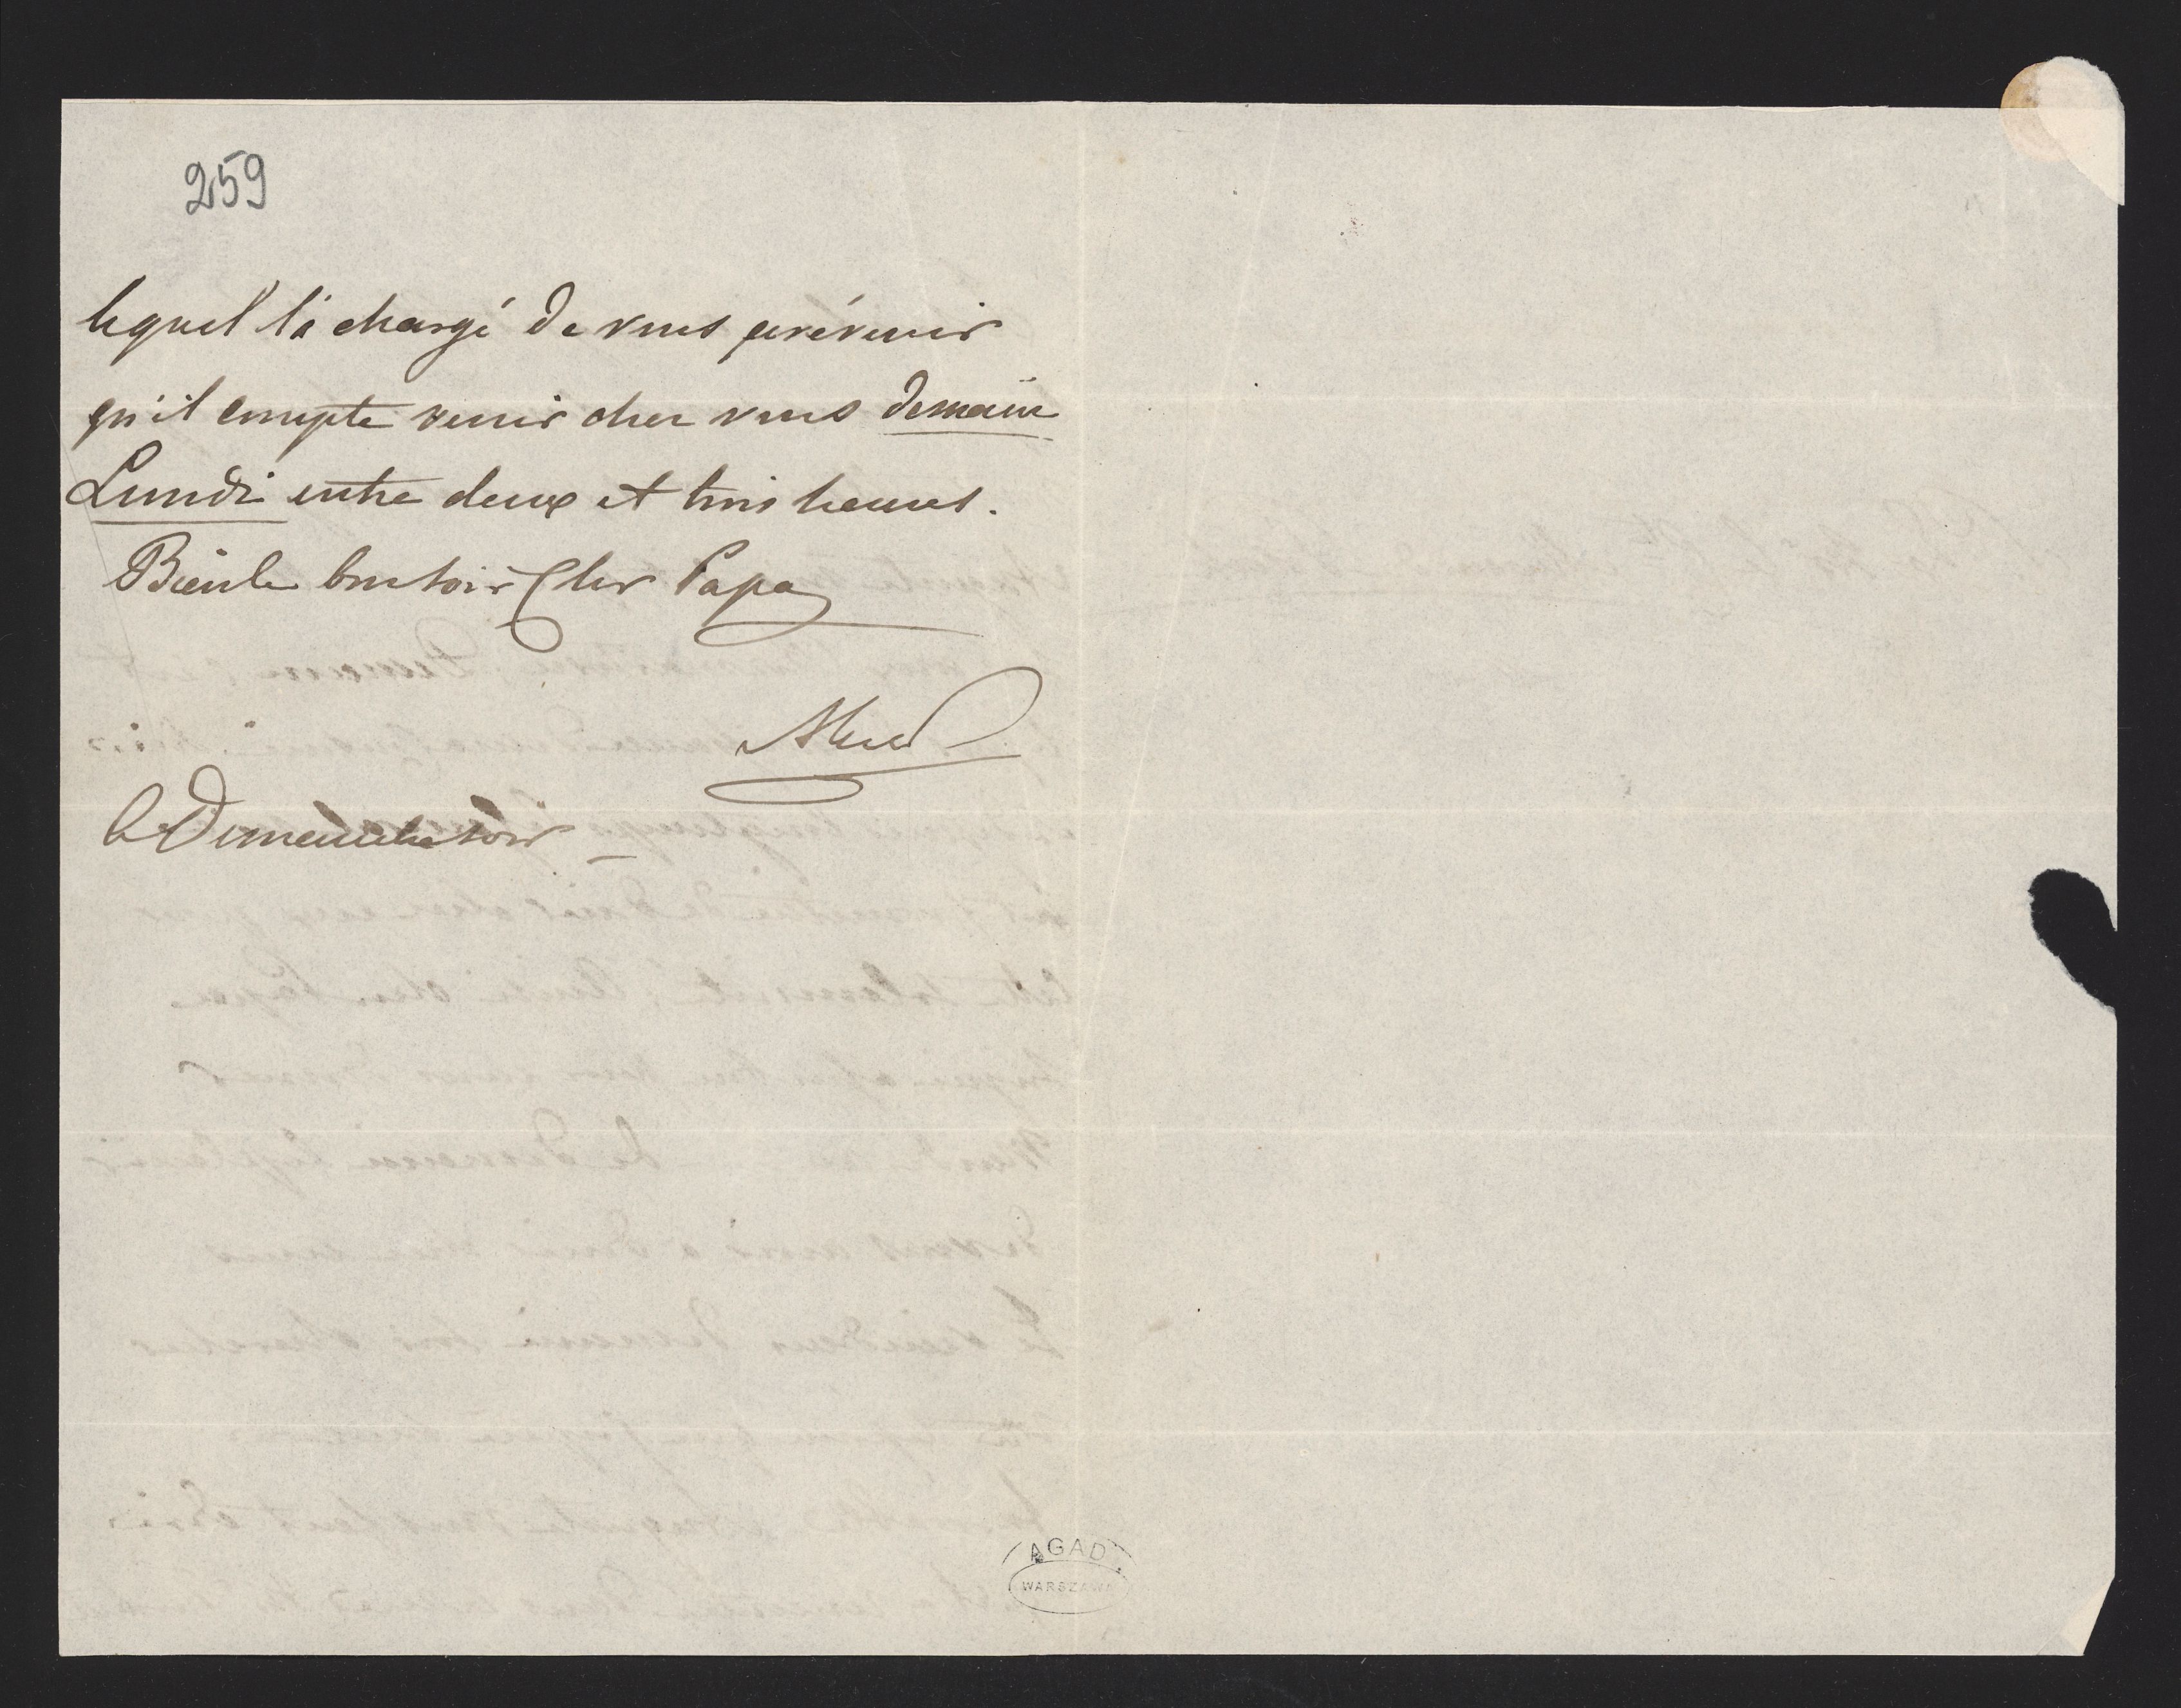 259
lequel l'a chargé de vous prévenir
qu'il compte venir chez vous demain
Lundi entre deux et trois heures.
Bien le bonsoir Cher Papa
le Dimanche soir
AGAD
WARSZAWA